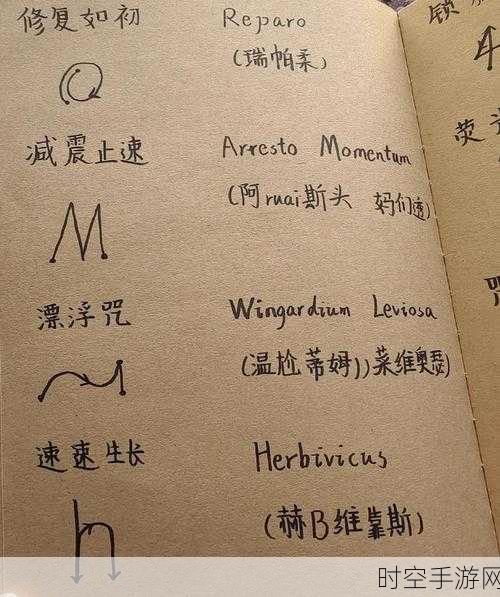 修复如初 Reparo
(瑞帕柔)
减震止速 Arresto Momentum
(阿ruai斯头 妈们透)
漂浮咒 Wingardium Leviosa
(温尬蒂姆))菜维奥瑟)
速速生长 Herbivicus
(赫B维靠斯)
锁
荧
咒
时空手游网